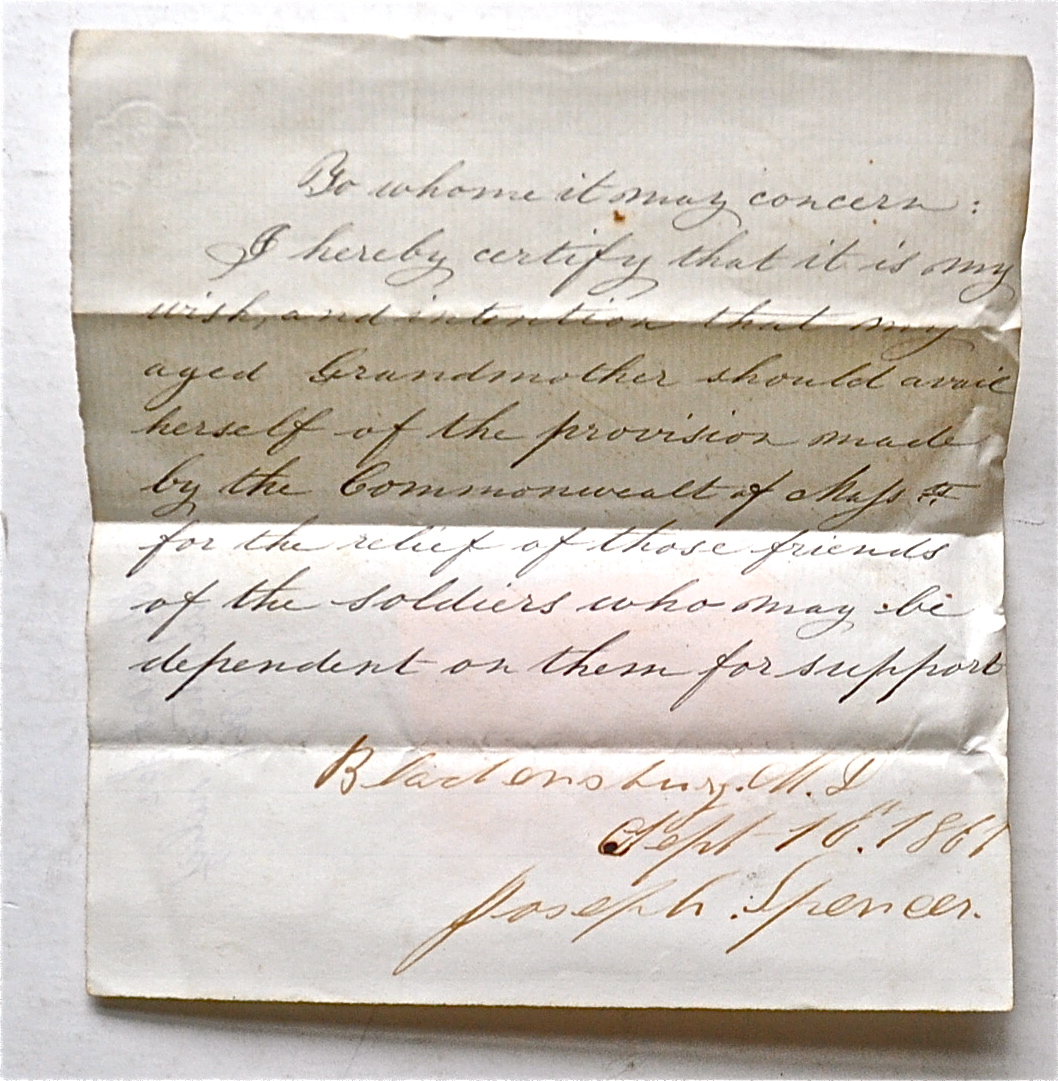 To whome it may concern:
I hereby certify that it is my
wish, and intention that my
aged Grandmother should avail
herself of the provision made
by the Commonwealt of Mass
for the relief of those friends
of the soldiers who may be
dependent on them for support
Bladensburg. M. D
Sept 1861
Joseph Spencer.